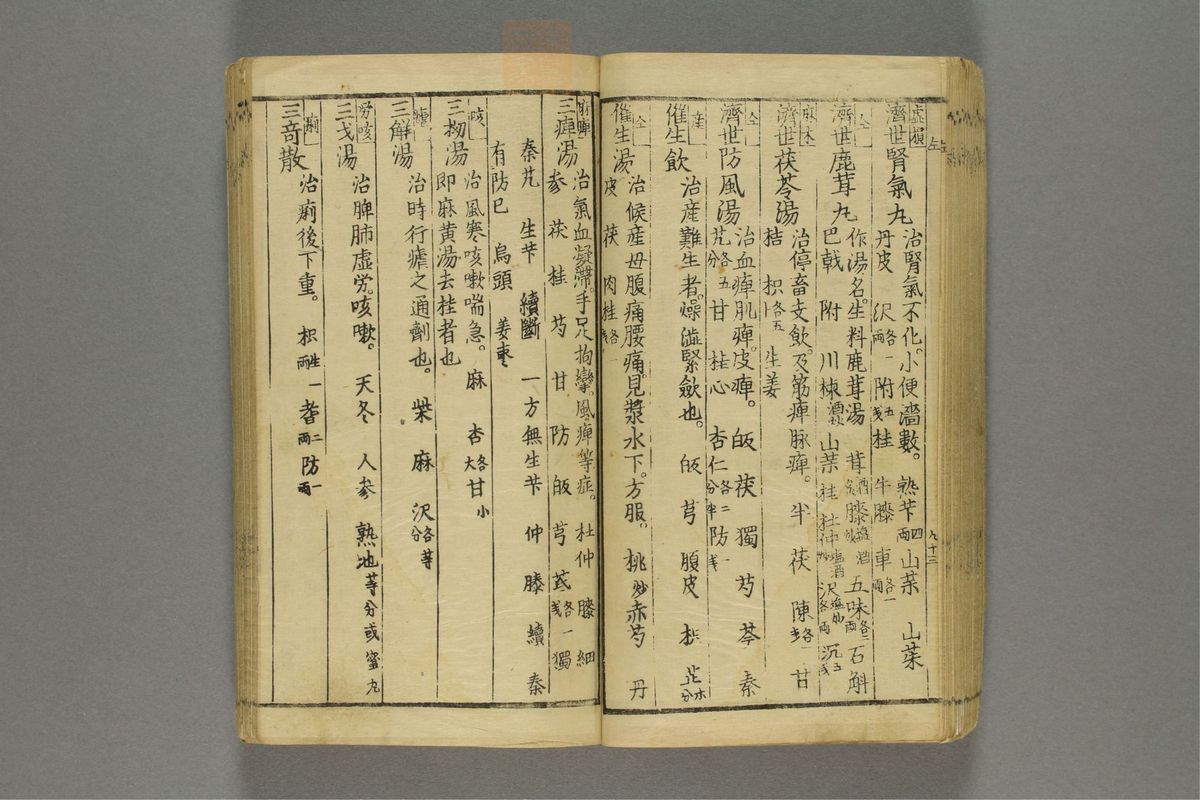 虛損
濟世腎氣丸
治腎氣不化。小便濇數。 熟芐四兩 山茱 山茱
丹皮 沢各一兩 附五戔 桂 牛膝 車各一兩
仝
濟世鹿茸丸
作湯名。生料鹿茸湯 茸酒炙 膝塩酒炒 五味各二兩 石斛
巴戟 附 川楝酒炒 山茱 桂 杜仲塩酒炒 沢塩炒各兩 沉五戔
麻木
濟世茯苓湯
治停畜支飲。及筋痺脉痺。 半 茯 陳各一戔 甘
桔 枳各五卜 生姜
仝
濟世防風湯
治血痺肌痺。皮痺。 皈 茯 獨 芍 芩 秦
艽各五分 甘 桂心 杏仁各二分半 防一戔
産
催生飲
治産難生者。燥澁緊斂也。 皈 芎 腹皮 枳 芷
仝
催生湯
治候産母腹痛腰痛。見漿水下。方服。 桃炒 赤芍 丹
皮 茯 肉桂各戔
三痺湯
治氣血凝滯。手足拘攣。風痺等症。 杜仲 膝 細
參 茯 桂 芍 甘 防 皈 芎 芪各一戔 獨
秦艽 生芐 續斷 一方無生芐 仲 膝 續 秦
有防已 烏頭 姜枣
咳
三拗湯
治風寒咳嗽喘急。 麻 杏各大 甘小
即麻黄湯去桂者也
瘧
三解湯
治時行瘧之通劑也。 柴 麻 沢各等分
勞咳
三戈湯
治脾肺虛労。咳嗽。 天冬 人參 熟地等分或蜜丸
痢
三奇散
治痢後下重。 枳生一兩 耆二兩 防一兩
九十三